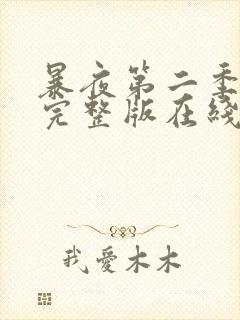 暴夜第二季
完整版在綫
我愛木木